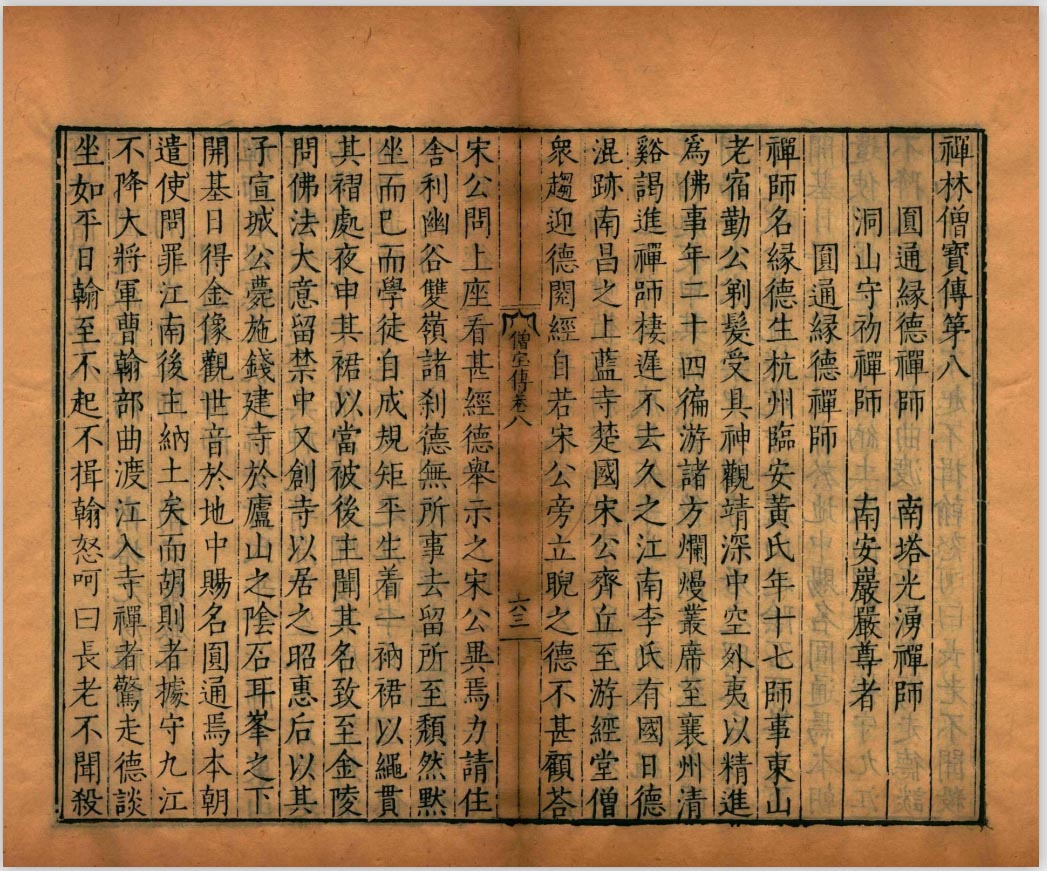 禪林僧寶傳第八
圓通緣德禪師 南塔光湧禪師
洞山守初禪師 南安巖嚴尊者
圓通緣德禪師
禪師名緣德生杭州臨安黃氏年十七師事東山
老宿勤公剃髮受具神觀靖深中空外夷以精進
爲佛事年二十四徧游諸方爛熳叢席至襄州清
谿謁進禪師棲遲不去久之江南李氏有國日德
混跡南昌之上藍寺楚國宋公齊丘至游經堂僧
衆趨迎德閱經自若宋公旁立睨之德不甚顧荅
僧宝傳卷八
六三
宋公問上座看甚經德舉示之宋公異焉力請住
舎利幽谷雙嶺諸刹德無所事去留所至頹然默
坐而已而學徒自成規矩平生着一衲裙以繩貫
其褶處夜申其裙以當被後主聞其名致至金陵
問佛法大意留禁中又創寺以居之昭惠后以其
子宣城公薨施錢建寺於廬山之陰石耳峯之下
開基日得金像觀世音於地中賜名圓通焉本朝
遣使問罪江南後主納土矣而胡則者據守九江
不降大將軍曹翰部曲渡江入寺禪者驚走德談
坐如平日翰至不起不揖翰怒呵曰長老不聞殺